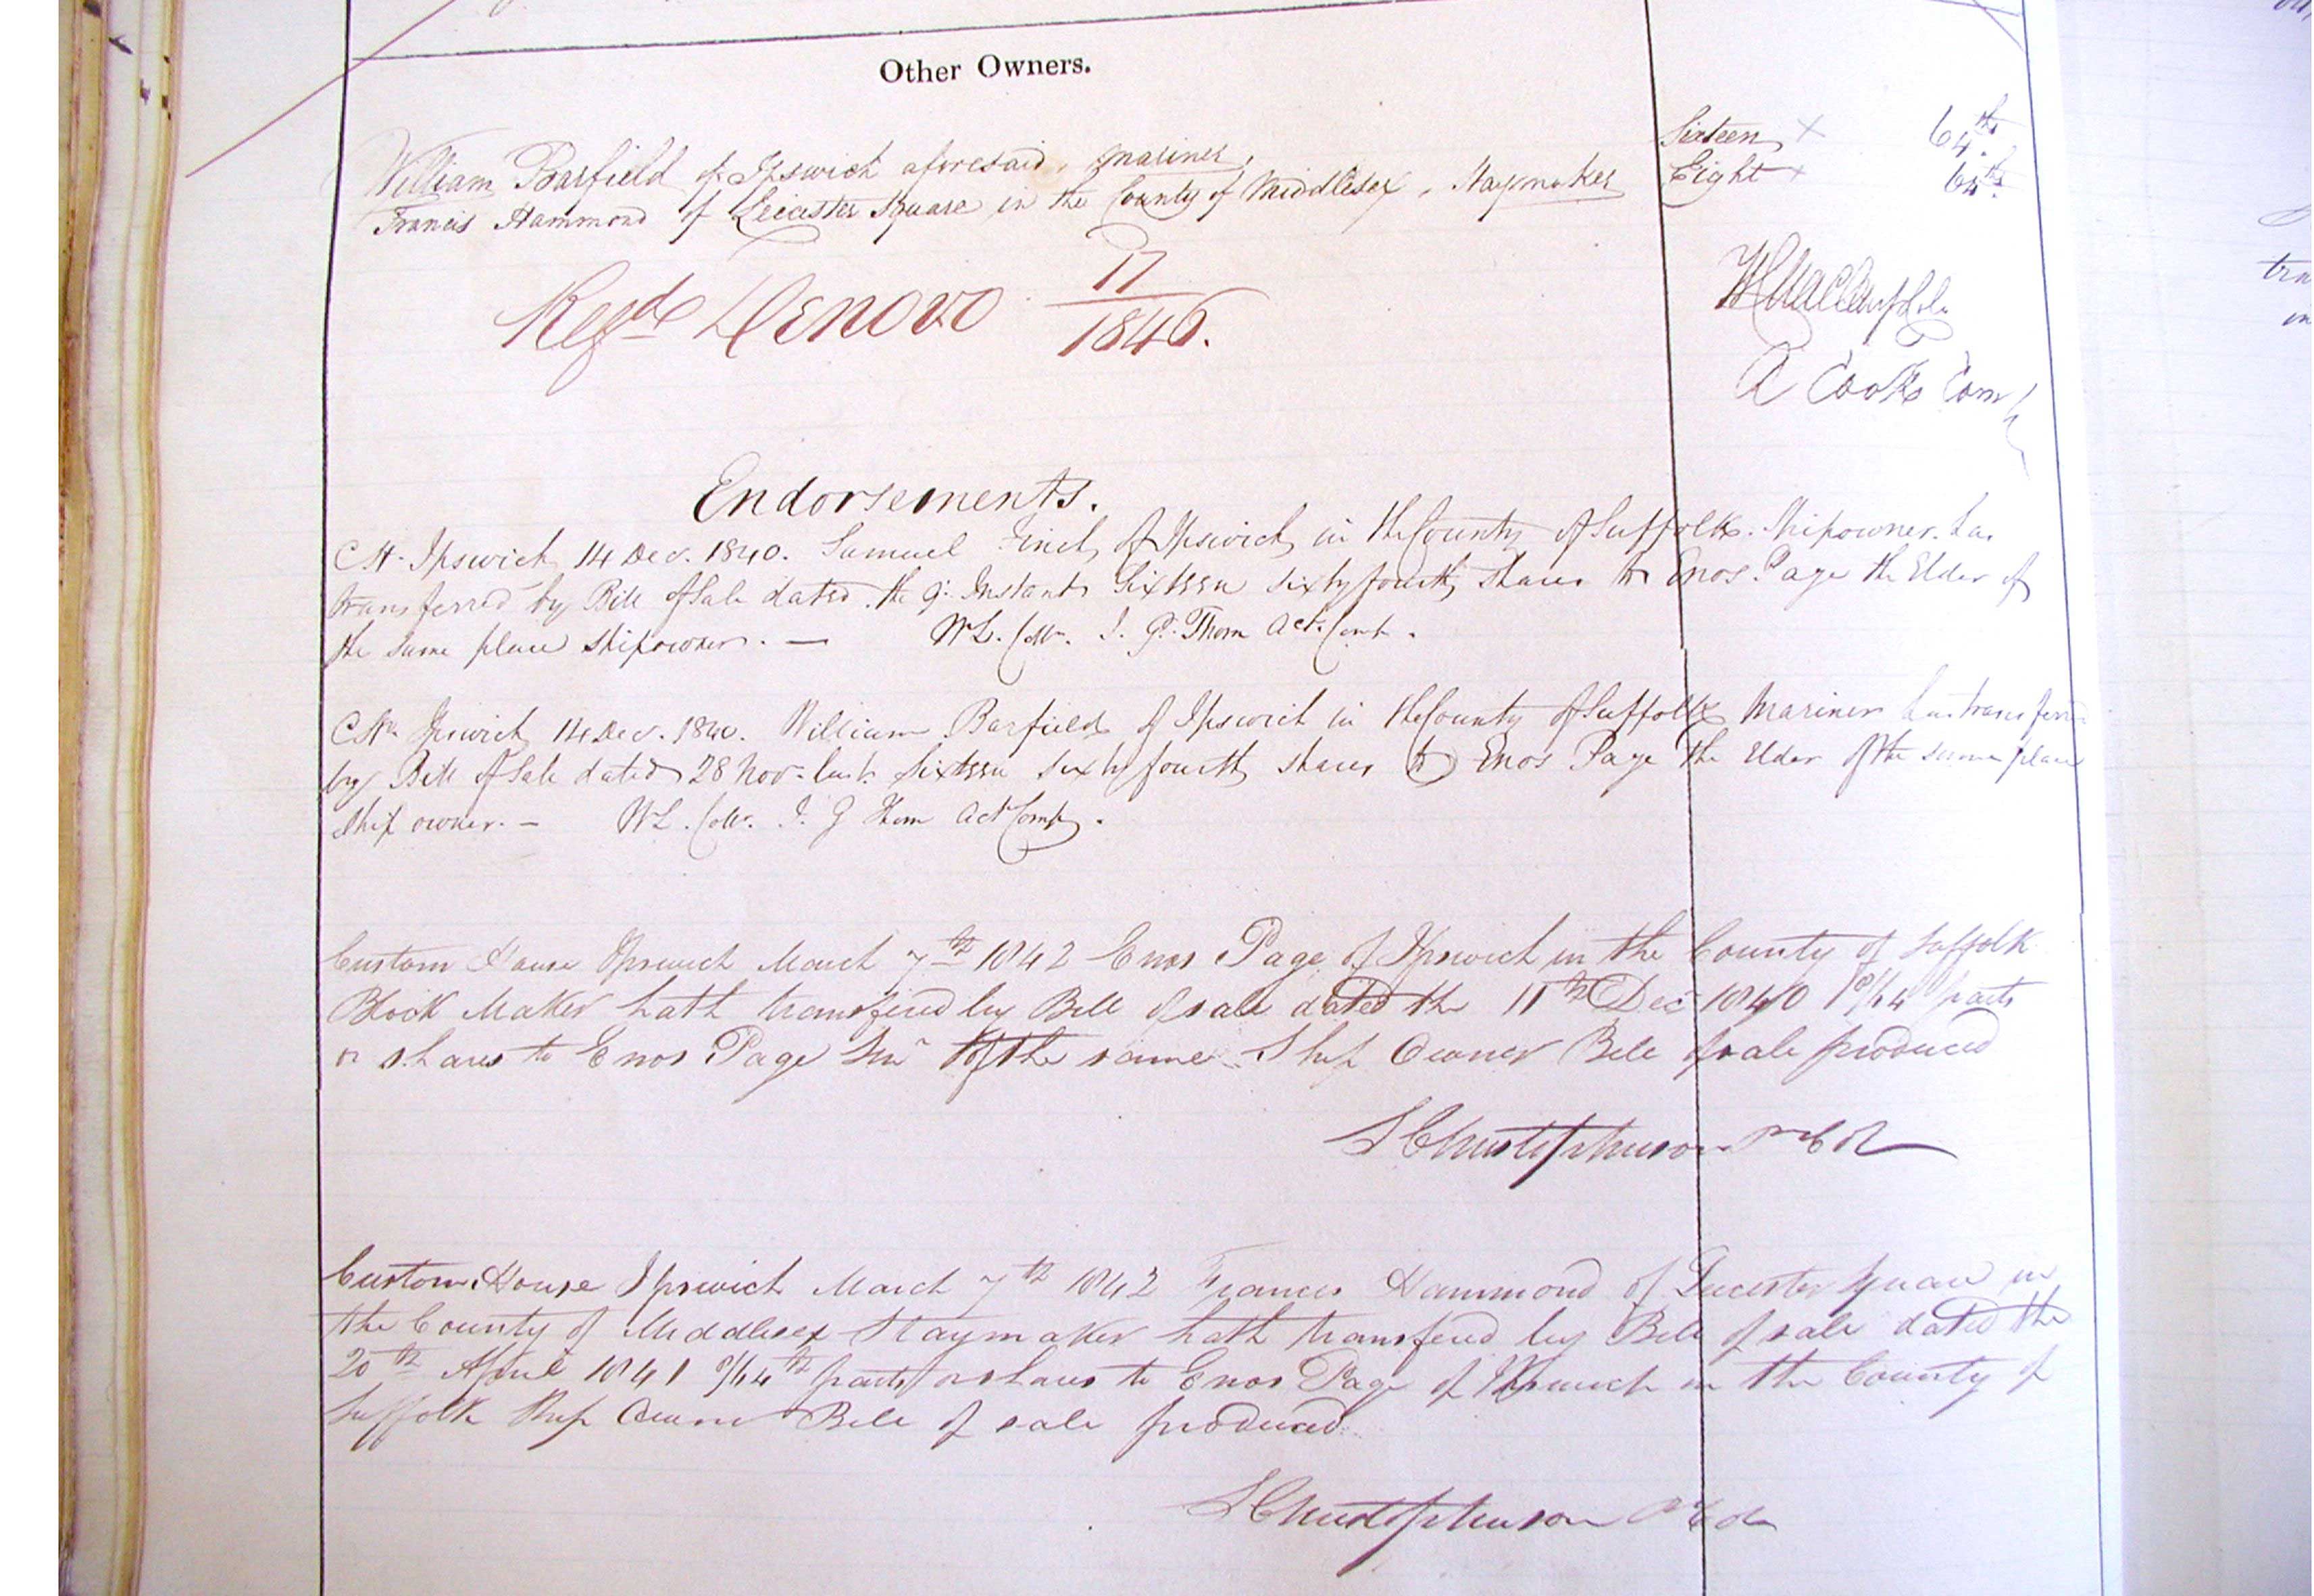 Other Owners.
William Barfield of Ipswich aforesaid, Mariner, Sixteen × 64ths
Francis Hammond of Leicester Square in the County of Middlesex, Staymaker Eight × 64ths
Regd Denovo 17/1846.
A Cooke Com
Endorsements.
CH. Ipswich 14 Dec. 1840. Samuel Finch of Ipswich in the County of Suffolk. Shipowner. has
transferred by Bill of Sale dated the 9. Instant Sixteen sixty fourth shares to Enos Page the Elder of
the same place shipowner. — WL. Collr. J. G. Thom Act. Comp.
CH. Ipswich 14 Dec. 1840. William Barfield of Ipswich in the County of Suffolk Mariner has transferred
by Bill of Sale dated 28 Nov. last. Sixteen sixty fourth shares to Enos Page the Elder of the same place
Ship owner. — WL. Collr. J. G Thom Act Comp.
Custom House Ipswich March 7th 1842 Enos Page of Ipswich in the County of Suffolk
Block Maker hath transfered by Bill of sale dated the 11th Dec 1840 /64 parts
or shares to Enos Page Snr of the same Ship Owner Bill of sale produced
S Christopherson
Custom House Ipswich March 7th 1842 Francis Hammond of Leicester Square in
the County of Middlesex Staymaker hath transfered by Bill of sale dated the
20th April 1841 8/64th parts or shares to Enos Page of Ipswich in the County of
Suffolk Ship Owner Bill of sale produced
S Christopherson